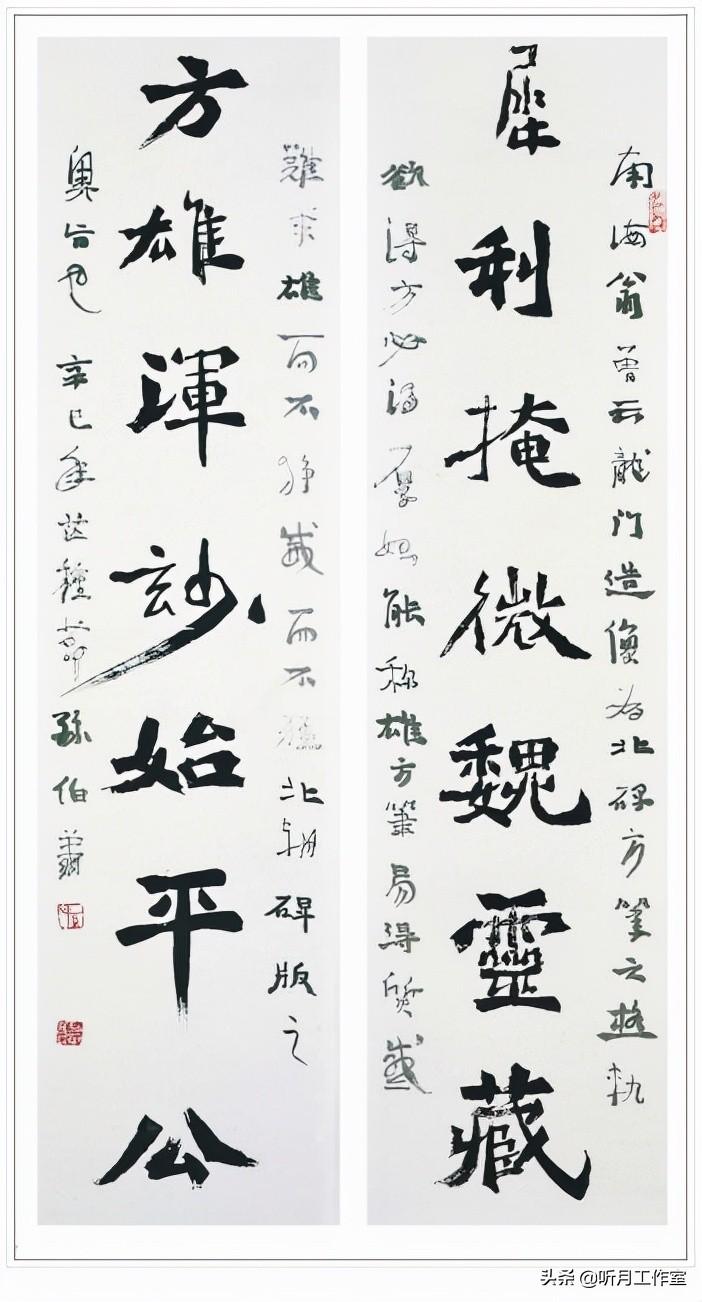 犀利掩微魏靈藏
南海翁曾云龍门造像为北碑方筆之極軌
欲得方必得厚始能称雄方筆易得質感
方雄渾妙始平公
難求雄而不猙感而不 北朝碑版之
奥旨也 辛巳年 種 節 孫伯翔
头条 @听月工作室